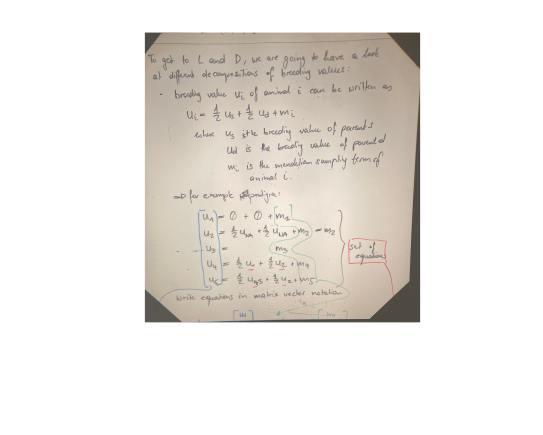 To get to L and D, we are going to have a look
at different decompositions of breeding values:
- breeding value u_i of animal i can be written as
u_i = 1/2 u_s + 1/2 u_d + m_i
where u_s is the breeding value of parent s
u_d is the breeding value of parent d
m_i is the mendelian sampling term of
animal i.
=> for example pedigree:
u_1 = 0 + 0 + m_1
u_2 = 1/2 u_NA + 1/2 u_NA + m_2 = m_2
u_3 = m_3
u_4 = 1/2 u_1 + 1/2 u_2 + m_4
u_5 = 1/2 u_3 + 1/2 u_2 + m_5
set of
equations
Write equations in matrix vector notation